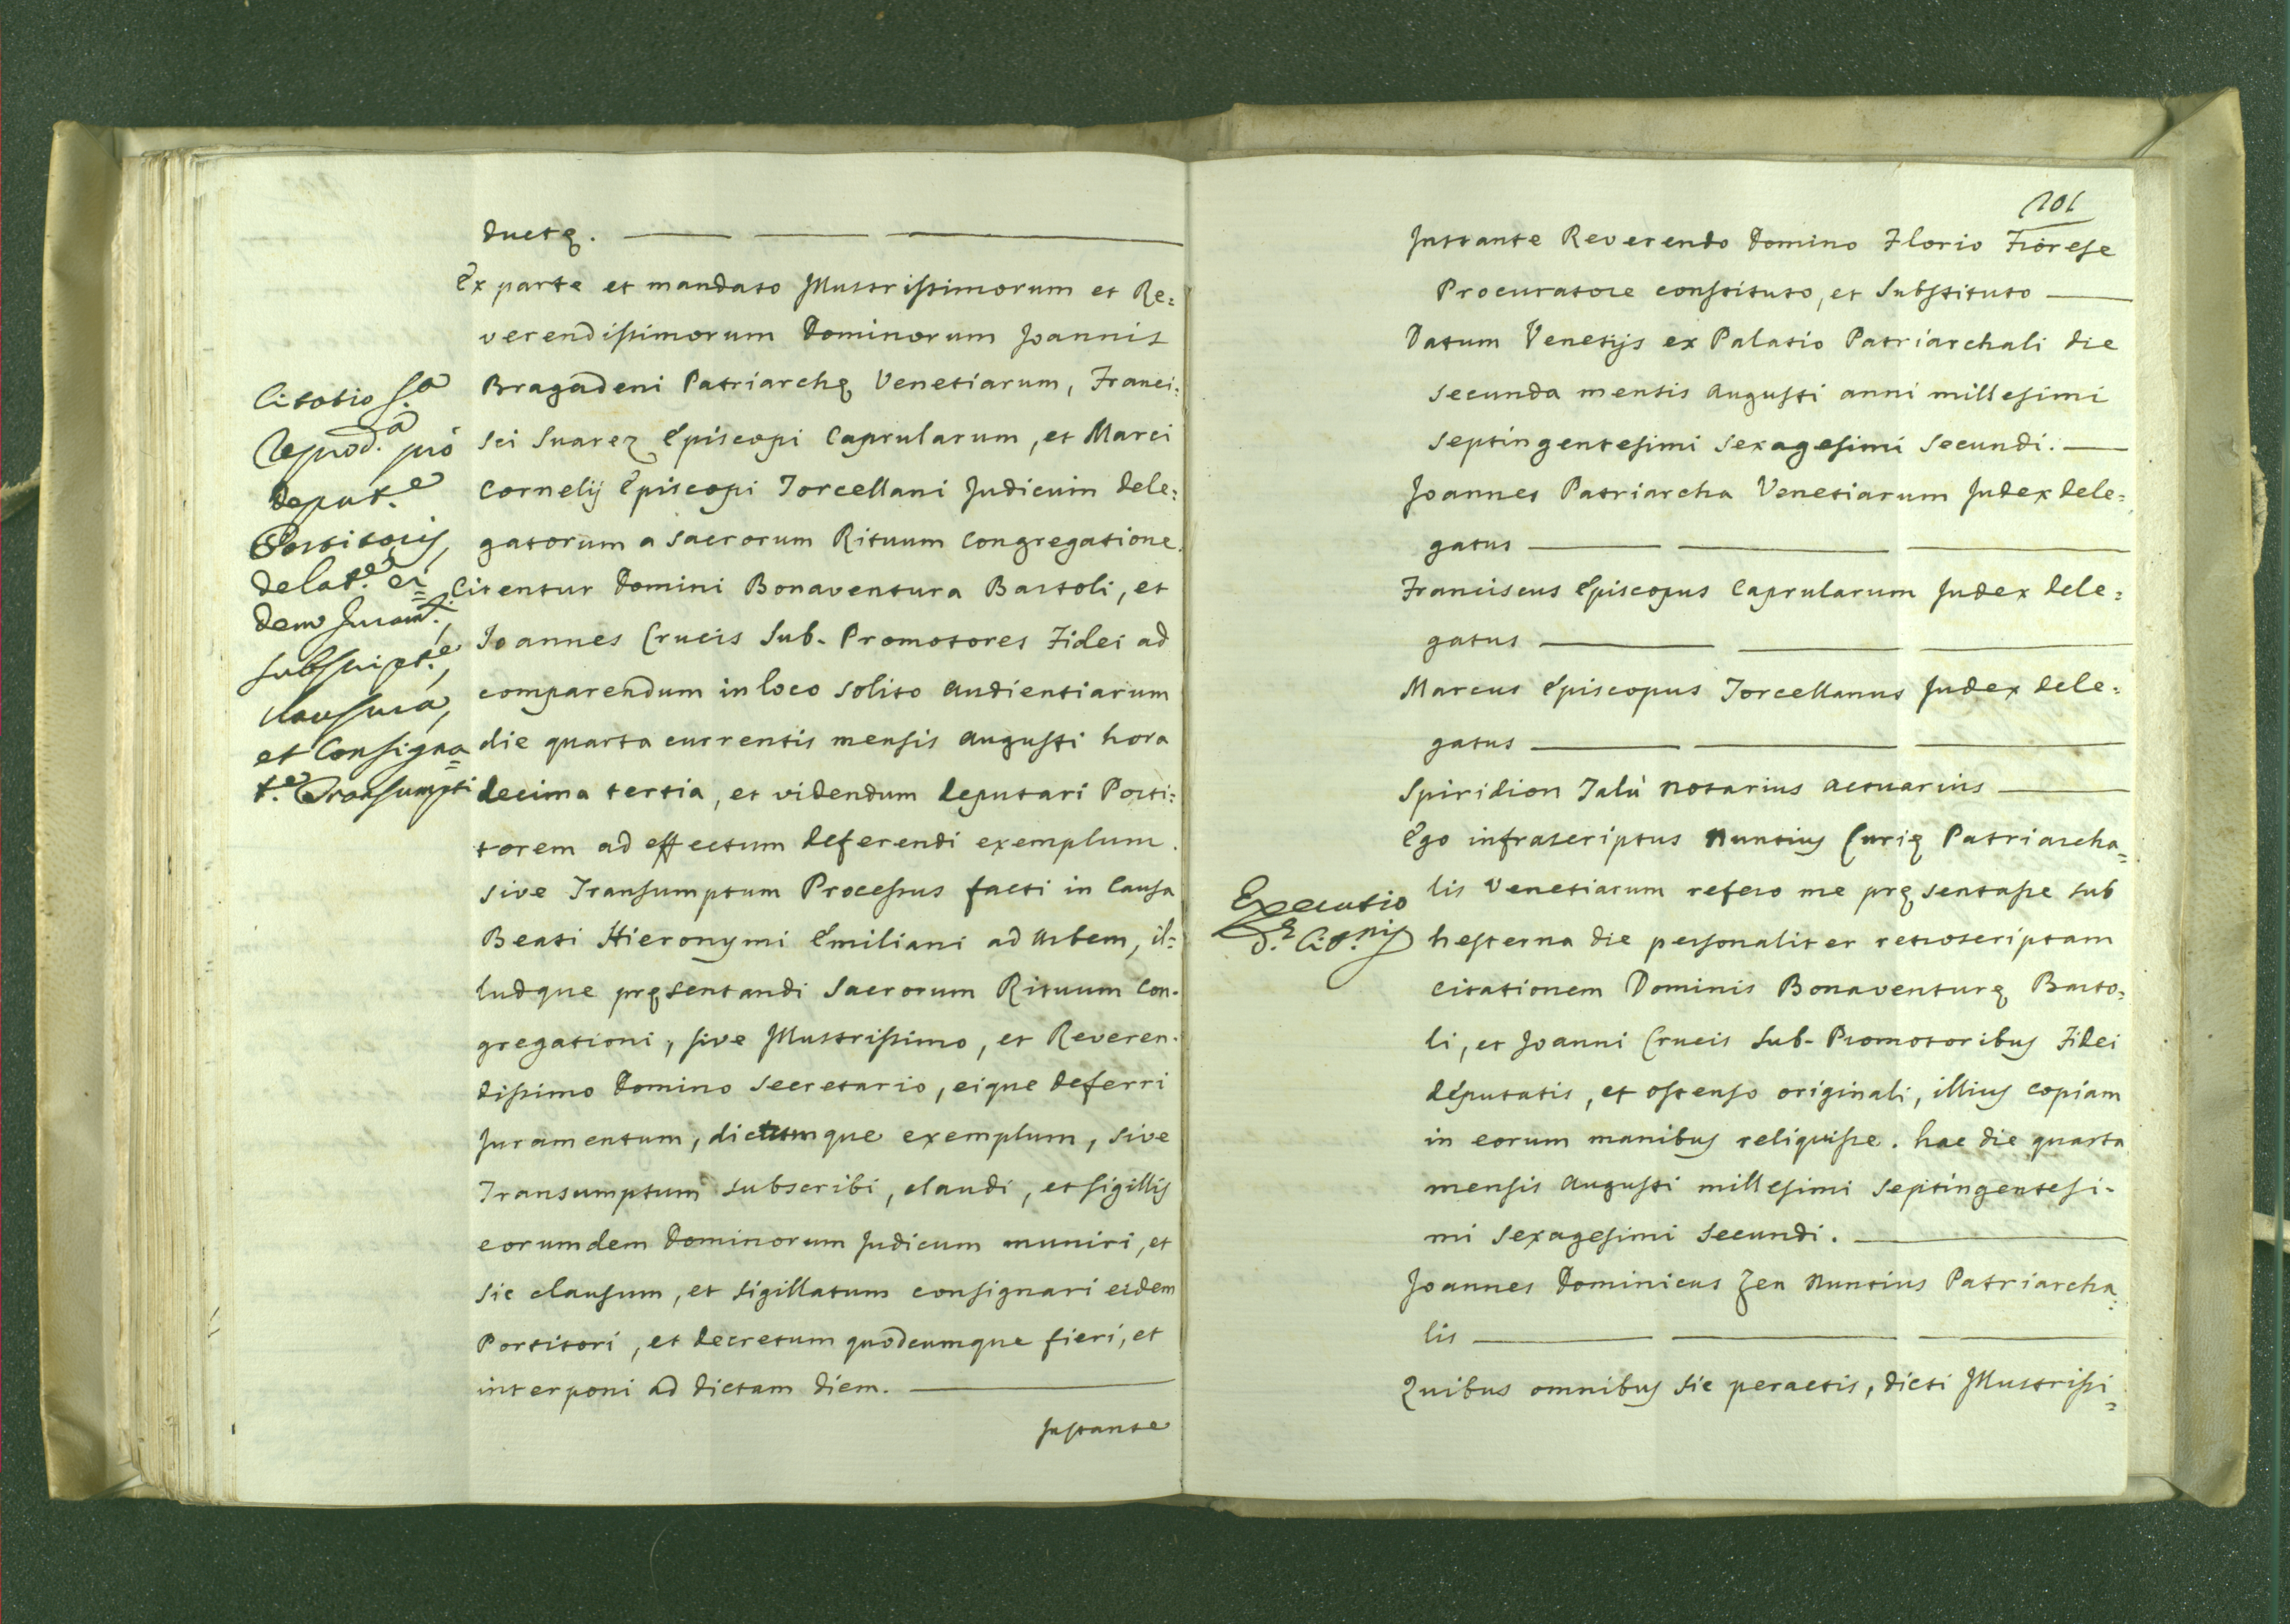 ductę.
Ex parte et mandato Illustrissimorum et Re=
verendissimorum Dominorum Joannis
Bragadeni Patriarchę Venetiarum, Franci=
sci Suarez Episcopi Caprularum, et Marci
Cornelij Episcopi Torcellani Judicum dele=
gatorum a Sacrorum Rituum Congregatione.
Citentur Domini Bonaventura Bartoli, et
Joannes Crucis Sub-Promotores Fidei ad
comparendum in loco solito Audientiarum
die quarta currentis mensis Augusti hora
decima tertia, et videndum deputari Porti=
torem ad effectum deferendi exemplum.
sive Transumptum Processus facti in Causa
Beati Hieronymi Emiliani ad Urbem, il=
ludque pręsentandi Sacrorum Rituum Con-
gregationi, sive Illustrissimo, et Reveren-
dissimo Domino Secretario, eique deferri
Juramentum, dictumque exemplum, sive
Transumptum subscribi, claudi, et sigillis
eorumdem Dominorum Judicum muniri, et
sic clausum, et sigillatum consignari eidem
Portitori, et decretum quodcumque fieri, et
interponi ad dictam diem.
Instante
Citatio f.a
reprod.a pro
deput.e
Portitoris,
delat.e ei=
dem Juram.ti,
subscript.e,
clausura,
et Consigna=
t.e Transumpti
101
Instante Reverendo Domino Florio Fiorese
Procuratore constituto, et Substituto
Datum Venetijs ex Palatio Patriarchali die
secunda mensis Augusti anni millesimi
septingentesimi sexagesimi secundi.
Joannes Patriarcha Venetiarum Judex dele=
gatus
Franciscus Episcopus Caprularum Judex dele=
gatus
Marcus Episcopus Torcellanus Judex dele=
gatus
Spiridion Talù Notarius Actuarius
Ego infrascriptus Nuntius Curię Patriarcha=
lis Venetiarum refero me pręsentasse sub
hesterna die personaliter retroscriptam
citationem Dominis Bonaventurę Barto=
li, et Joanni Crucis Sub-Promotoribus Fidei
deputatis, et ostenso originali, illius copiam
in eorum manibus reliquisse. hac die quarta
mensis Augusti millesimi septingentesi-
mi sexagesimi secundi.
Joannes Dominicus Zen Nuntius Patriarcha=
lis
Quibus omnibus sic peractis, dicti Illustrissi=
Executio
d.ę Cit.nis